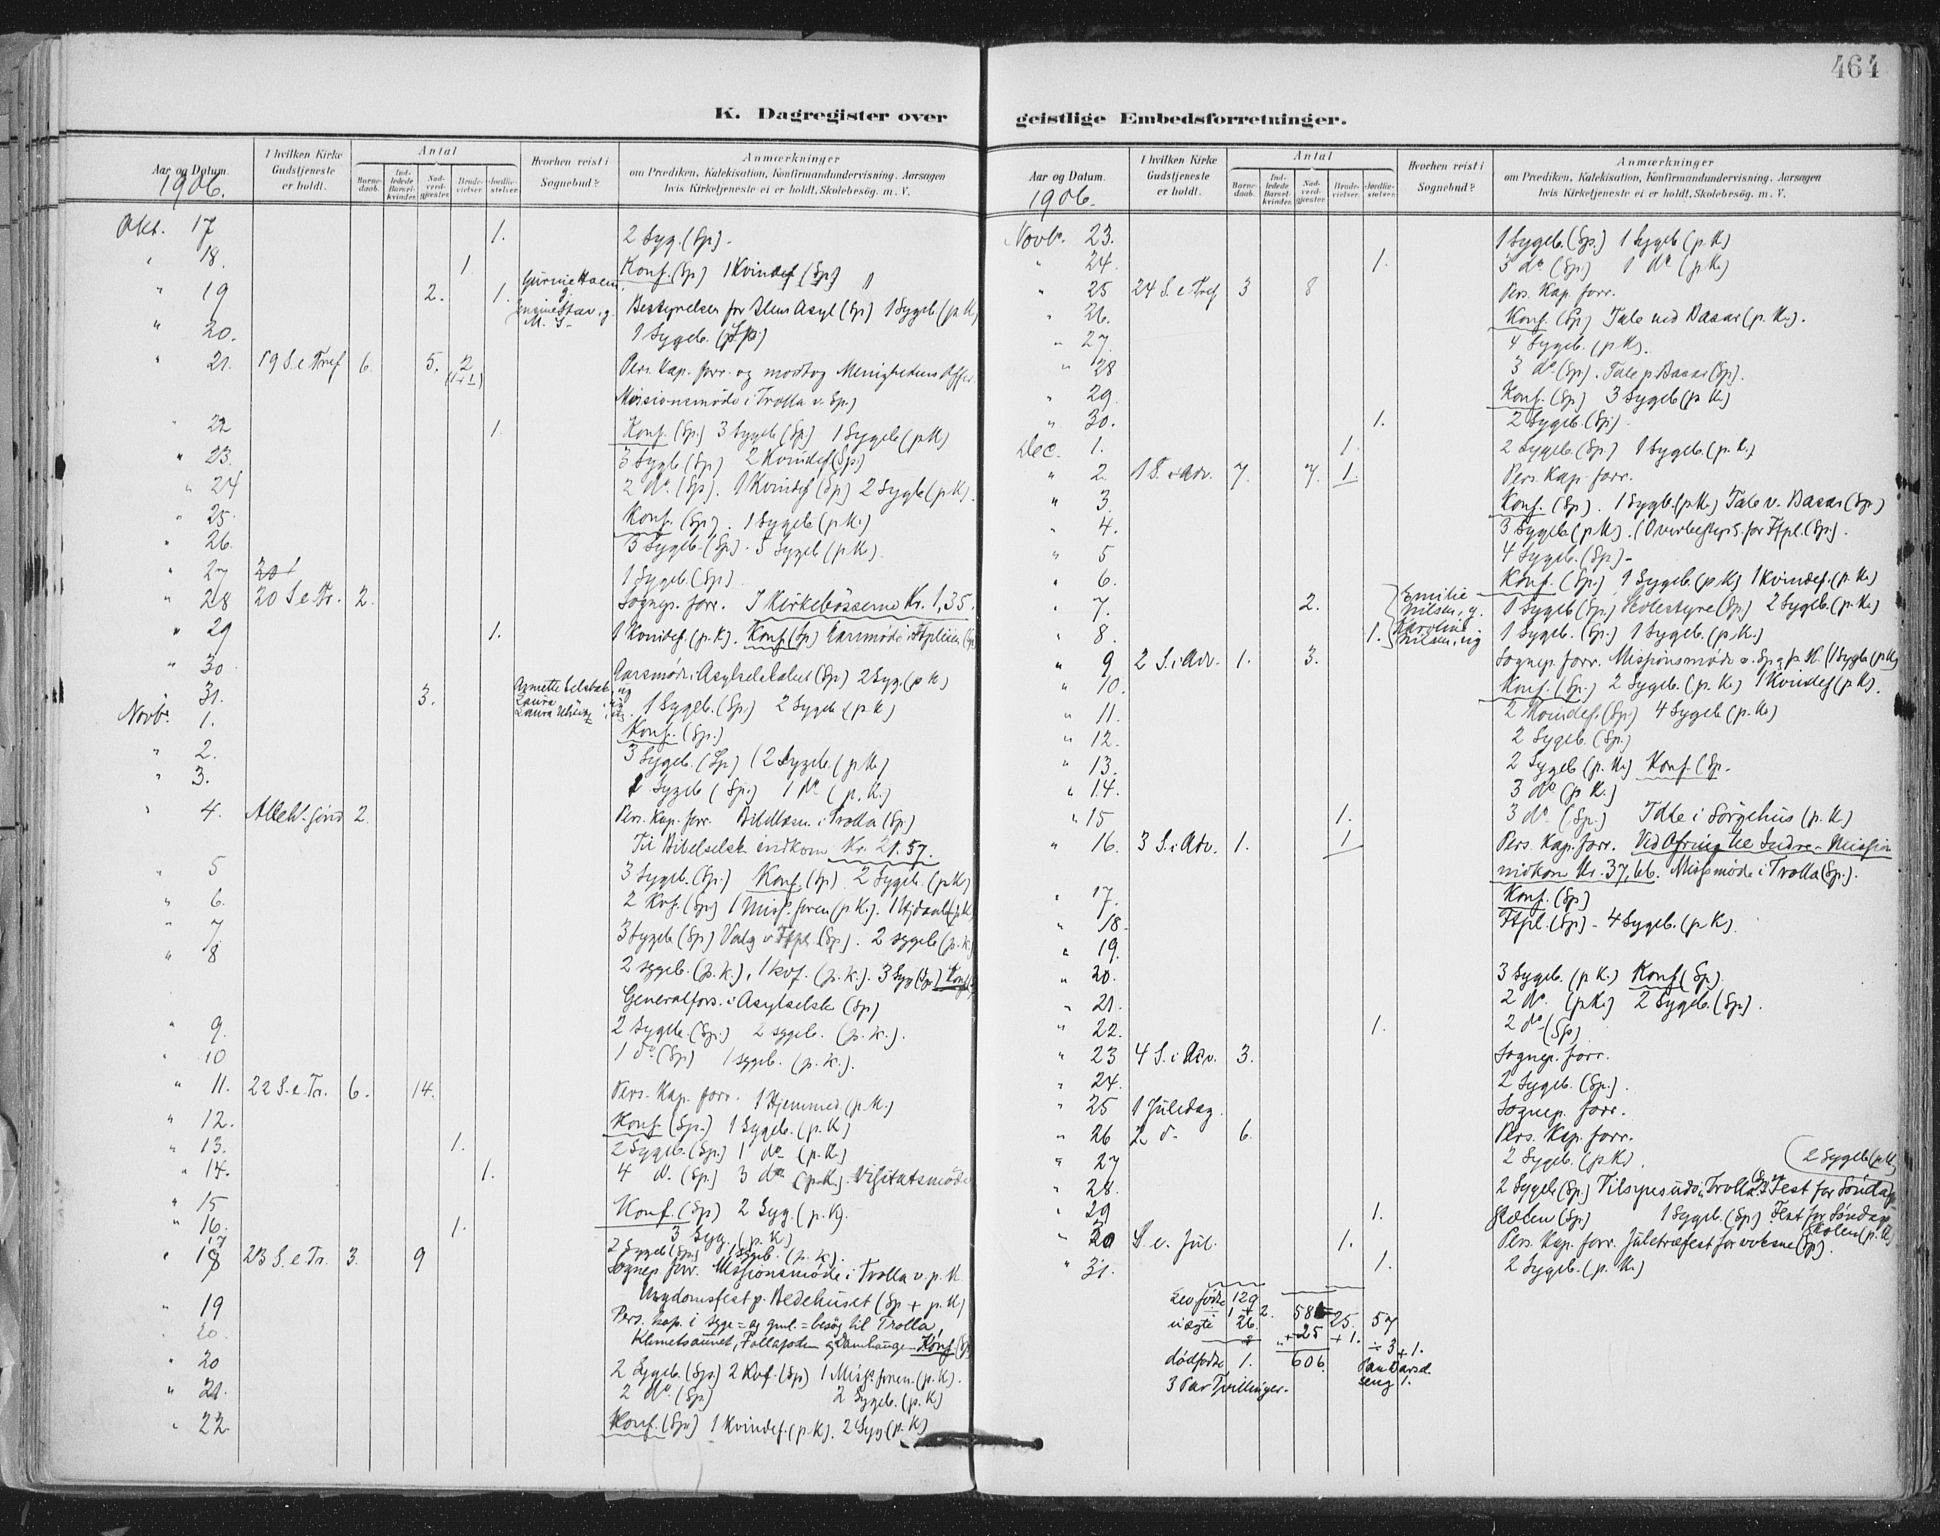 464
K. Dagregister over geistlige Embedsforretninger.
Aar og Datum. I hvilken Kirke Gudstjeneste er holdt. Antal Barne-daab. Ind-ledede Barsel-kvinder. Nad-verd-gjester. Brude-vielser. Jordfæ-stelser. Hvorhen reist i Sognebud? Anmærkninger om Prædiken, Katekisation, Konfirmandundervisning, Aarsagen hvis Kirketjeneste ei er holdt, Skolebesøg. m. V.
1906.
Okt. 17 1. 2 Syg. (Sp).
" 18. 1. Konf. (Sp) 1 Kvindef (Sp)
" 19 2. 1. Bestyrelsen for Ilens Asyl (Sp) 1 Sygeb. (p. K)
" 20. 1 Sygeb. (Sp)
" 21. 19 S. e Tref 6. 5. 2 (1+1) Pers. Kap. forr. og modtog Menighedens Offer.
Missionsmøde i Trolla v. Sp.)
" 22 1. Konf. (Sp) 3 Sygeb (Sp) 1 Sygeb (p K)
" 23. 3 Sygb. (Sp) 2 Kvindef (Sp)
" 24 2 do. (Sp). 1 Kvindef (Sp) 2 Sygb (p K).
" 25. Konf. (Sp). 1 Sygeb (p. K.)
" 26. 3 Sygeb. (Sp). 5 Sygeb (p K).
" 27 1 Sygeb (Sp).
" 28 20 S e Tr. 2. Sognep. forr. I Kirkebösserne Kr. 1,35.
" 29 1. 1 Kvindef. (p. K). Konf. (Sp) Aarsmøde i
" 30 Aarsmøde i Asylselskabet (Sp) 2 Syg. (p K)
" 31. 3. 1 Sygeb. (Sp) 2 Sygeb (p K)
Novbr. 1. Konf. (Sp.)
" 2. 3 Sygeb. (Sp) 2 Sygeb. (p K)
" 3. Sygeb (Sp.) 1 do (p. K.)
" 4. Alleh. sønd 2. Pers. Kap. forr. Bibellæsn. i Trolla (Sp.)
Til Bibelselsk. indkom Kr. 21.57.
" 5 3 Sygeb. (Sp.) Konf. (Sp) 2 Sygeb. (p K)
" 6. 2 Kvf. (Sp) 1 Miss. foren (p K.).
" 7 3 Sygeb (Sp) Valg (Sp). 2 sygeb (p. k.)
" 8 2 sygeb. (p. k.), 1 kvf. (p. k.). 3 Syg (Sp) Konf
Generalfors. i Asylselsk (Sp)
" 9. 2 Sygeb. (Sp.) 2 sygeb. (p. k.).
" 10 1 do (Sp) 1 sygeb. (p. k.).
" 11. 22 S. e Tr. 6. 14. Pers. Kap. forr. 1 Hjemmed. (p. K.)
" 12. Konf. (Sp.) 1 Sygeb. (p. K)
" 13. 1. 2 Sygeb. (Sp.) 1 do (p. K.)
" 14. 1. 4 d. (Sp) 3 do (p. K.). Visitatsmøde
" 15 Konf. (Sp) 2 Syg. (p. K).
" 16. 1. 3 Syg. (p. K)
17 2 Sygeb (Sp.) 1 sygeb. (p. k.).
" 18 23 S. e Tr. 3. 9 Sognep. forr. Missionsmøde i Trolla v. p. K.
" 19 Ungdomsfest p. Bedehuset (Sp + p. K)
" 20. Pers. kap. i syge= og gml.= besøg til Trolla,
" 20 Konf. (Sp)
" 21. 2 Sygeb. (Sp) 2 Kvf. (Sp) 1 Miss. foren. (p. K).
2 do. (Sp) 2 Sygeb. (p. K)
" 22 Konf. (Sp) 1 Kvindef. (p K). 2 Syg (p. K)
Aar og Datum. I hvilken Kirke Gudstjeneste er holdt. Antal Barne-daab. Ind-ledede Barsel-kvinder. Nad-verd-gjester. Brude-vielser. Jordfæ-stelser. Hvorhen reist i Sognebud? Anmærkninger om Prædiken, Katekisation, Konfirmandundervisning, Aarsagen hvis Kirketjeneste ei er holdt, Skolebesøg. m. V.
1906.
Novbr. 23. 1 Sygeb. (Sp.) 1 Sygeb (p. K)
" 24. 1. 3 do (Sp) 1 do (p K.)
" 25 24 S. e Tref 3 8 Pers. Kap. forr.
" 26. Konf. (Sp) Tale ved Basar (p. K.).
" 27. 4 Sygeb. (p K).
" 28 3 do (Sp). Tale p Basar (Sp).
" 29. Konf. (Sp) 3 Sygeb (p K.)
" 30. 1. 2 Sygeb. (Sp).
Dec. 1. 1. 2 Sygeb. (Sp) 1 Sygeb. (p. K.)
" 2. 1 S. i Adv. 7. 7. 1. Pers. Kap. forr.
" 3. Konf. (Sp). 1 Sygb. (p K.) Tale v. Basar (Sp)
" 4. 3 Sygeb (p K). (Sp).
" 5 4 Sygeb. (Sp).
" 6. Konf. (Sp.) 1 Sygeb. (p K) 1 Kvindef. (p. K.)
" 7. 2. Emilie Nilsen, g. 1 Sygeb (Sp) Skolestyre (Sp) 2 Sygeb. (p. K.)
" 8. 1. Karoline Nilsen, ug 1 Sygeb. (Sp.) 1 Sygeb. (p. K.)
" 9 2 S. i Adv. 1. 3. Sognep. forr. Missionsmøde v. Sp. og p. K. (1 Sygb (p K)
" 10. Konf. (Sp.) 2 Sygeb. (p. K.) 1 Kvindef (p K).
" 11. 2 Kvindef. (Sp) 4 Sygeb (p. K.)
" 12. 2 Sygeb. (Sp)
" 13. 2 Sygeb (p. K.) Konf. (Sp.
" 14. 3 do (p K.)
" 15 1. 3 do. (Sp.) Tale i Sörgehus (p. K)
" 16. 3 S. i Adv. 1. 1 Pers. Kap. forr. Ved Ofring til Indre- Mission
indkom Kr. 37,66. Missmøde i Trolla (Sp.).
" 17. Konf. (Sp)
" 18. Ftpl. (Sp) - 4 Sygeb. (p K).
" 19.
" 20. 3 Sygeb. (p K.) Konf. (Sp).
" 21. 2 do. (p K.) 2 Sygeb. (Sp).
" 22. 1. 2 do (Sp)
" 23 4 S. i Adv. 3. Sognep. forr.
" 24. 2 Sygeb. (Sp.).
" 25 1 Juledag. Sognep. forr.
" 26 2 d- 6. Pers. Kap. forr.
" 27 2 Sygeb. (p K). 2 Sygeb (p K)
" 28. 2 Sygeb (Sp) Trolla Fest for Söndag
" 29 1. skolen (Sp) 1 Sygeb. (Sp) Fest for Söndags
skolen (p. K)
" 30 S. e. Jul. 1. Pers. Kap. forr. Juletræfest for voksne (Sp).
" 31. 1. 2 Sygeb. (p. K.)
Levfödte 129 581 25. 57
uægte 26. + 25 + 1. ÷ 3 + 1.
dödfödte 1. 606.
3 Par Tvillinger.